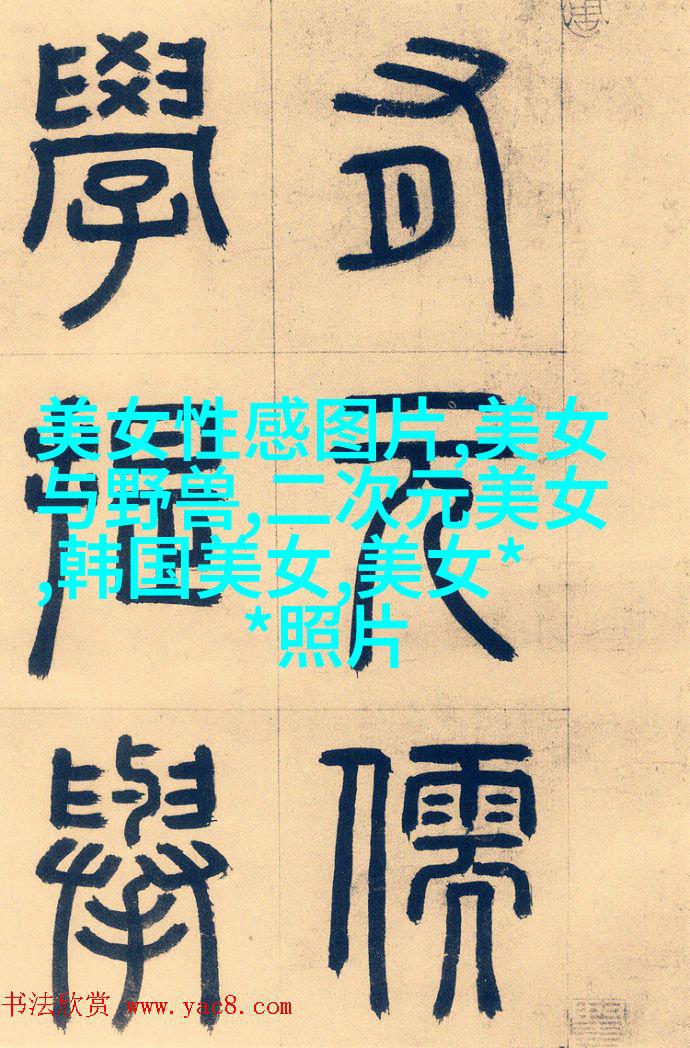 有元儒
學舉
美女性感图片,美女
与野兽,二次元美女
,韩国美女,美女*
*照片
书法欣赏 www.yac8.com